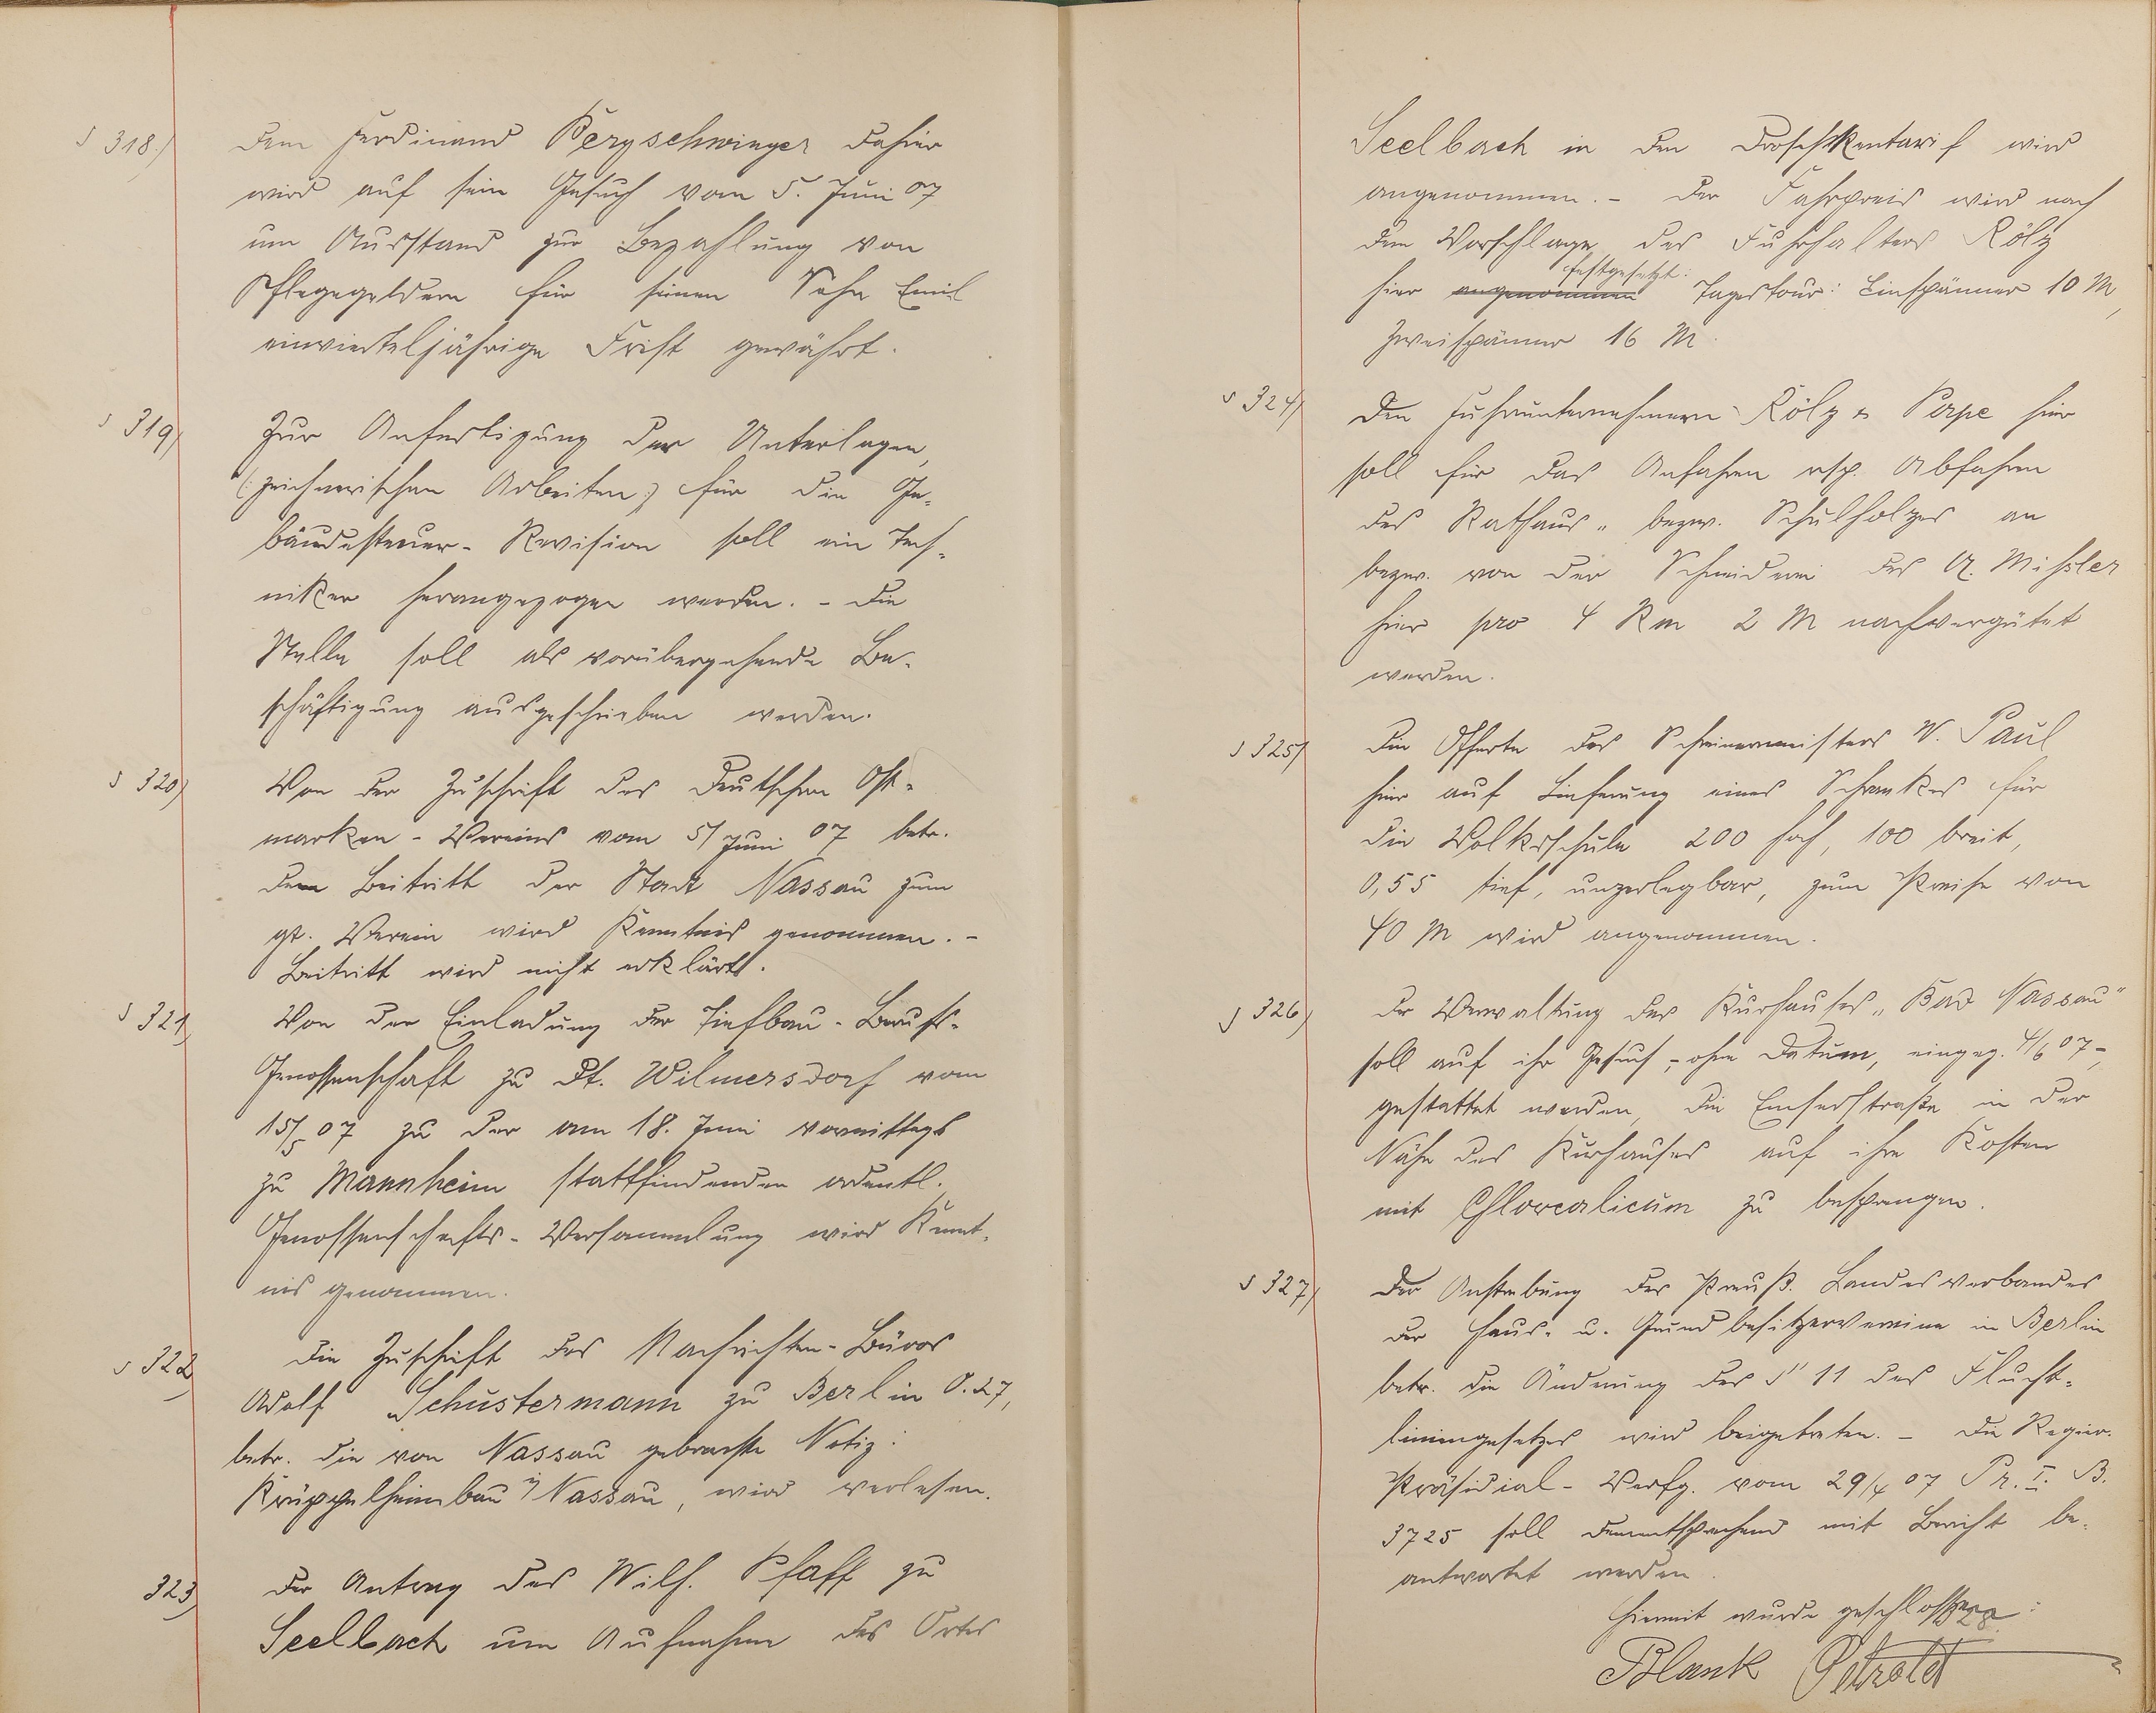 § 318) Dem Ferdinand Bergschwinger dahier
wird auf sein Gesuch vom 5. Juni 07
um Ausstand zur Bezahlung von
Pflegegeldern für seinen Sohn Emil
einvierteljährige Frist gewährt.
§ 319) Zur Anfertigung der Unterlagen,
(: zeichnerischen Arbeiten :) für die Ge-
bäudesteuer-Revision soll ein Tech-
niker herangezogen werden. - Die
Stelle soll als vorübergehende Be-
schäftigung ausgeschrieben werden.
§ 320) Von der Zuschrift des Deutschen Ost-
marken-Vereins vom 5/ Juni 07 betr.
dem Beitritt der Stadt Nassau zum
gt. Verein wird Kenntnis genommen. -
Beitritt wird nicht erklärt.
§ 321) Von der Einladung der Tiefbau-Berufs-
Genossenschaft zu Dt. Wilmersdorf vom
15/5 07 zu der am 18. Juni vormittags
zu Mannheim stattfindenden ordentl.
Genossenschafts-Versammlung wird Kennt-
nis genommen.
§ 322) Die Zuschrift des Nachrichten-Büros
Adolf Schustermann zu Berlin O. 27,
betr. die von Nassau gebrachte Notiz:
Krüppelheimbau i/ Nassau, wird verlesen.
323) Der Antrag des Wilh. Pfaff zu
Seelbach um Aufnahme des Ortes
Seelbach in den Droschkentarif wird
angenommen. - Der Fahrpreis wird nach
dem Vorschlage des Fuhrhalters Rölz
festgesetzt:
hier angenommen Tagestour: Einspänner 10 M,
Zweispänner 16 M.
§ 324) Den Fuhrunternehmern Rölz & Pepe hier
soll für das Anfahren resp. Abfahren
des Rathaus- bezw. Schulholzes an
bezw. von der Schneiderei des A. Mißler
hier pro 4 Rm 2 M nachvergütet
werden.
§ 325) Die Offerte des Schreinermeisters W. Paul
hier auf Lieferung eines Schrankes für
die Volksschule 200 hoch, 100 breit,
0,55 tief, unzerlegbar, zum Preise von
40 M wird angenommen.
§ 326) Der Verwaltung des Kurhauses „Bad Nassau"
soll auf ihr Gesuch, - ohne Datum, eingeg. 4/6 07 -,
gestattet werden, die Emserstraße in der
Nähe des Kurhauses auf ihre Kosten
mit Chlorcalicum zu besprengen.
§ 327) Der Anstrebung des Preuß. Landesverbandes
der Haus- u. Grundbesitzervereine in Berlin
betr. die Änderung des § 11 des Flucht-
liniengesetzes wird beigetreten. - Die Regier.
Präsidial-Verfg. vom 29/4 07 Pr. I. B.
3725 soll dementsprechend mit Bericht be-
antwortet werden.
Hiermit wurde geschlossen:
Blank Petzoldt